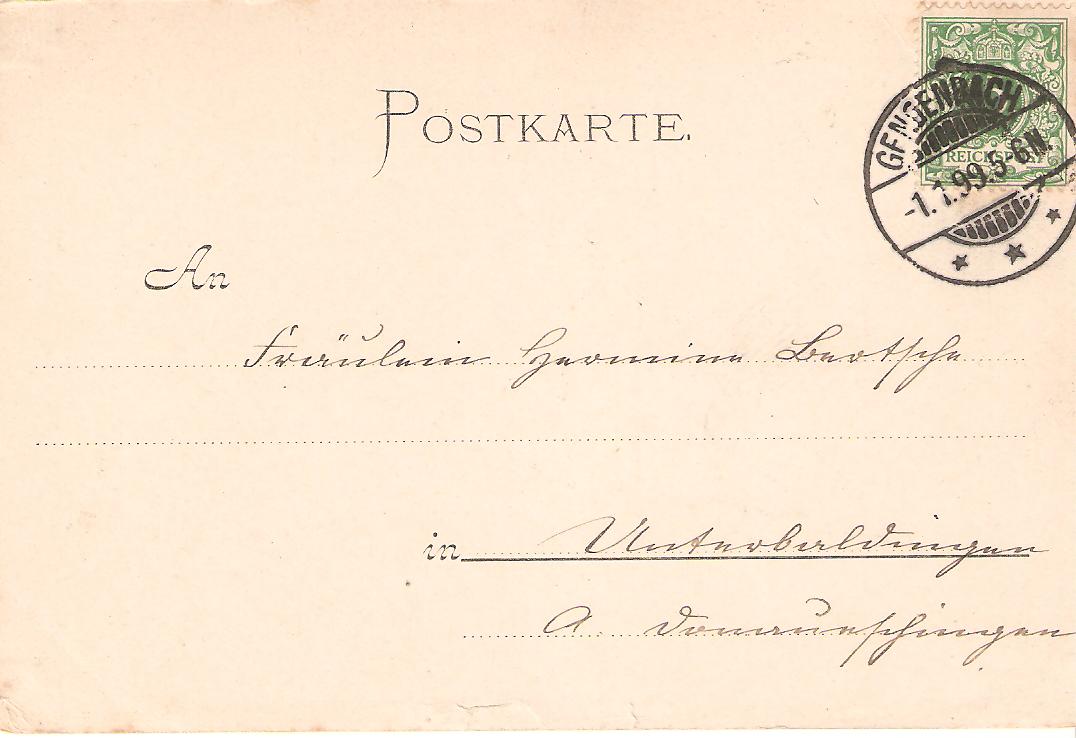 POSTKARTE.
GENGENBACH
-1.1.99.5-6N.
REICHSPOST
An
Fräulein Hermine Bertsche
in Unterbaldingen
A. Donaueschingen